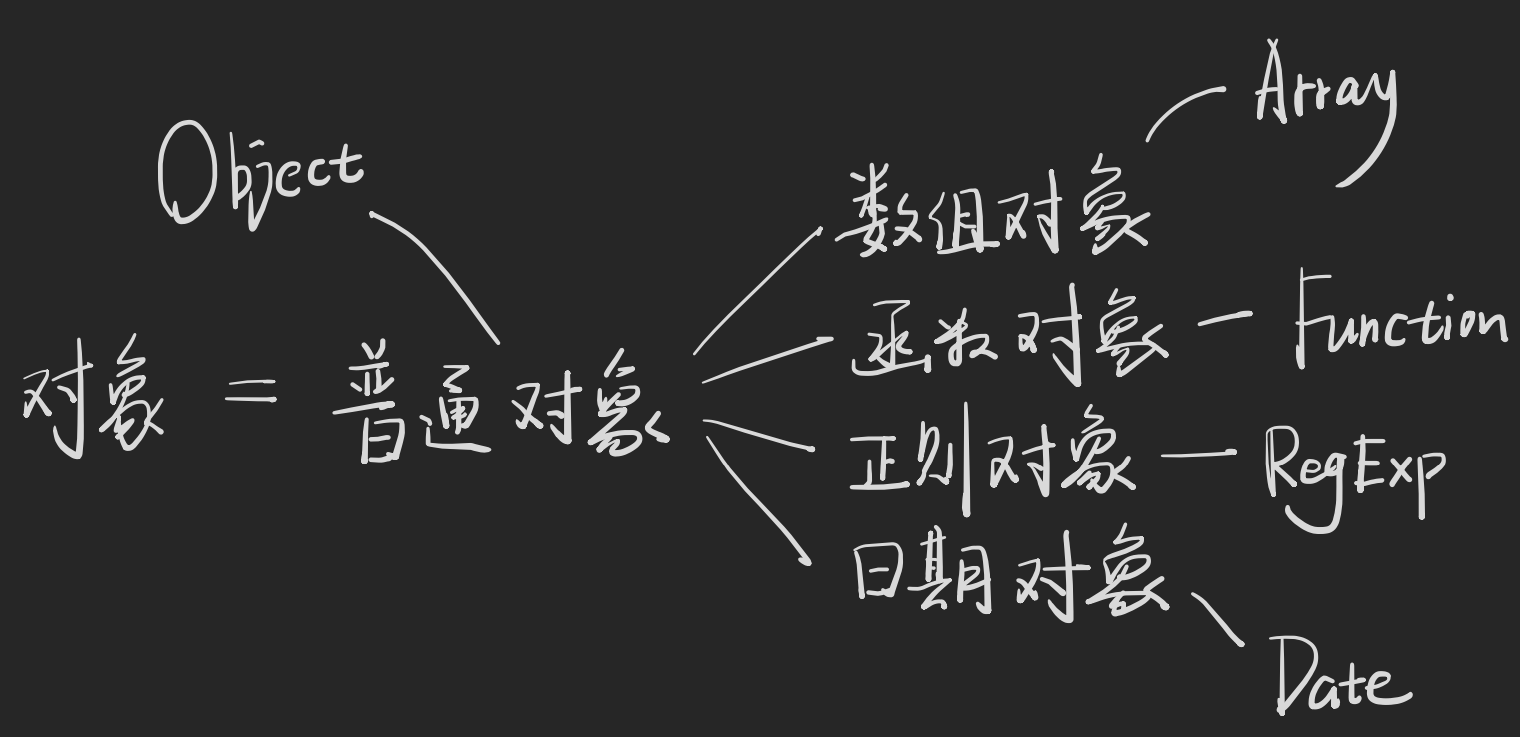 Object
对象 = 普通对象
数组对象
Array
函数对象
Function
正则对象
RegExp
日期对象
Date